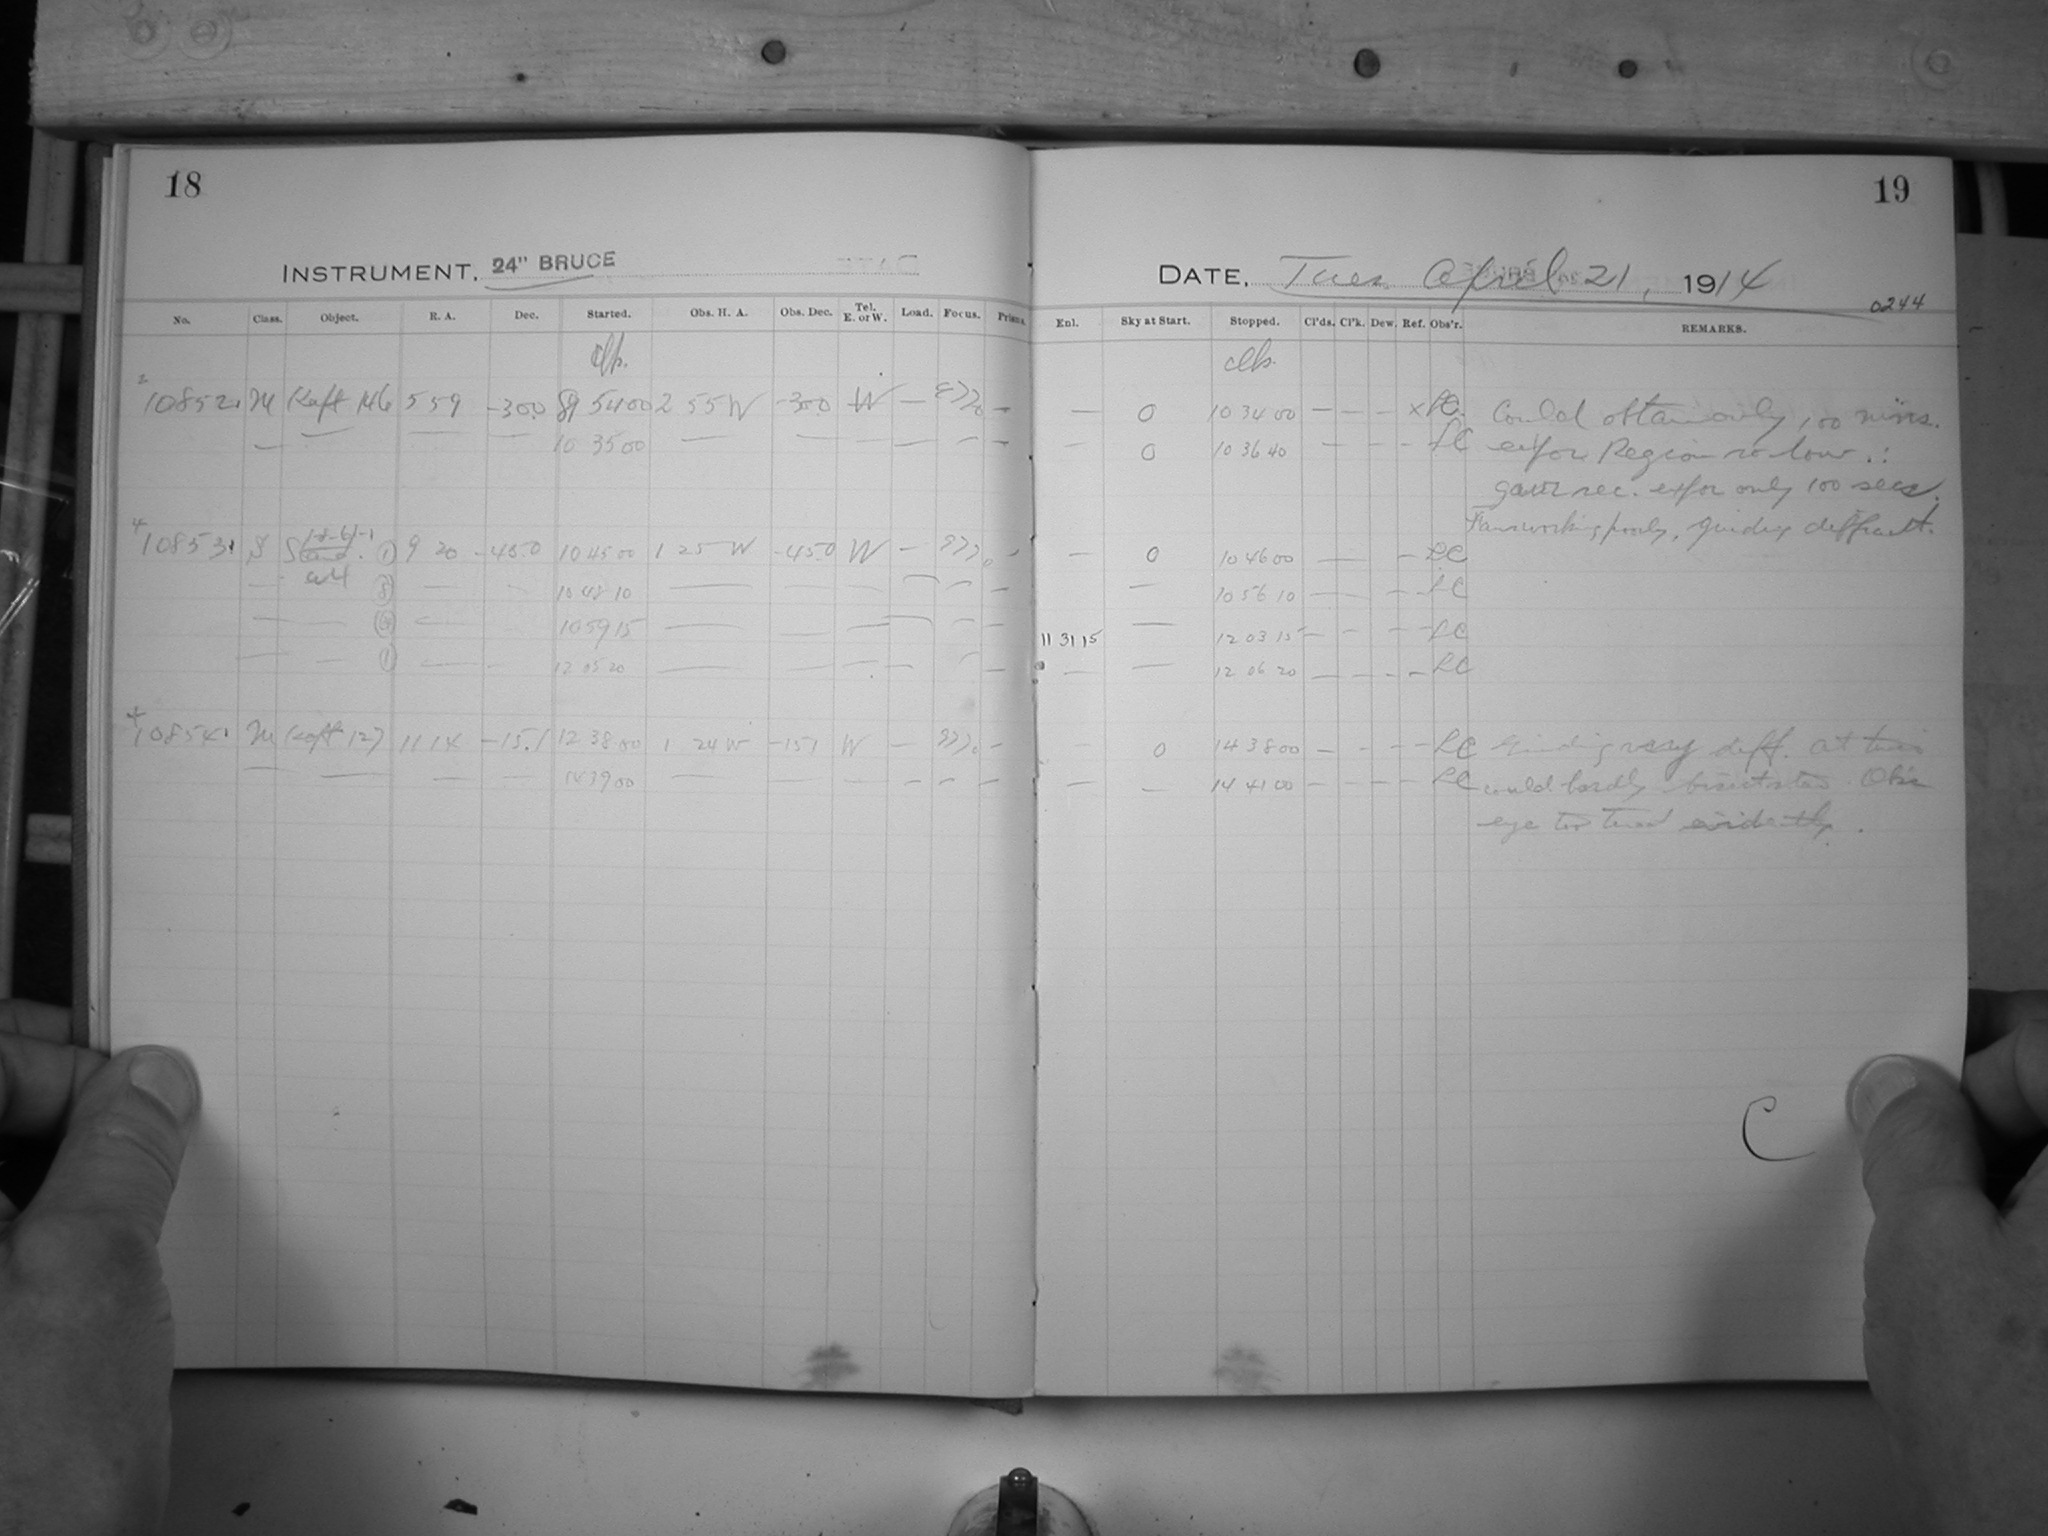 18
INSTRUMENT, 24" BRUCE
No. Class. Object. R. A. Dec. Started. Obs. H. A. Obs. Dec. Tel. E. or W. Load. Focus. Prism.
2
10852 M Kaft 146 5 59 -30.0 54 00 2 55 W -30.0 W —
— — — — 10 35 00 — — — — — —
4
10853 S 9 20 -45.0 10 45 00 1 25 W -45.0 W —
— ③ — — 10 48 10 — — — — — —
— — — 10 59 15 — — — — —
— — ① — — 12 05 20 — — — — — —
4
10854 M Kaft 127 11 14 -15.1 12 38 00 1 24 W -15.1 W — —
— — — — 14 39 00 — — — — — —
19
DATE, Tues. April 21, 1914
0244
Enl. Sky at Start. Stopped. Cl'ds. Cl'k. Dew. Ref. Obs'r. REMARKS.
— 0 10 34 00 — — — × LC. Could obtain only 100 mins.
— 0 10 36 40 — — — — LC expos Region so low ∴
gave sec. expos only 100 secs.
working poorly, guiding difficult.
— 0 10 46 00 — — LC
— 10 56 10 — — — — LC
11 31 15 — 12 03 15 — — — — LC
— — 12 06 20 — — — — LC
— 0 14 38 00 — — — — LC Guiding very diff. at
— — 14 41 00 — — — — LC could hardly Obs
eye too tired evidently.
C